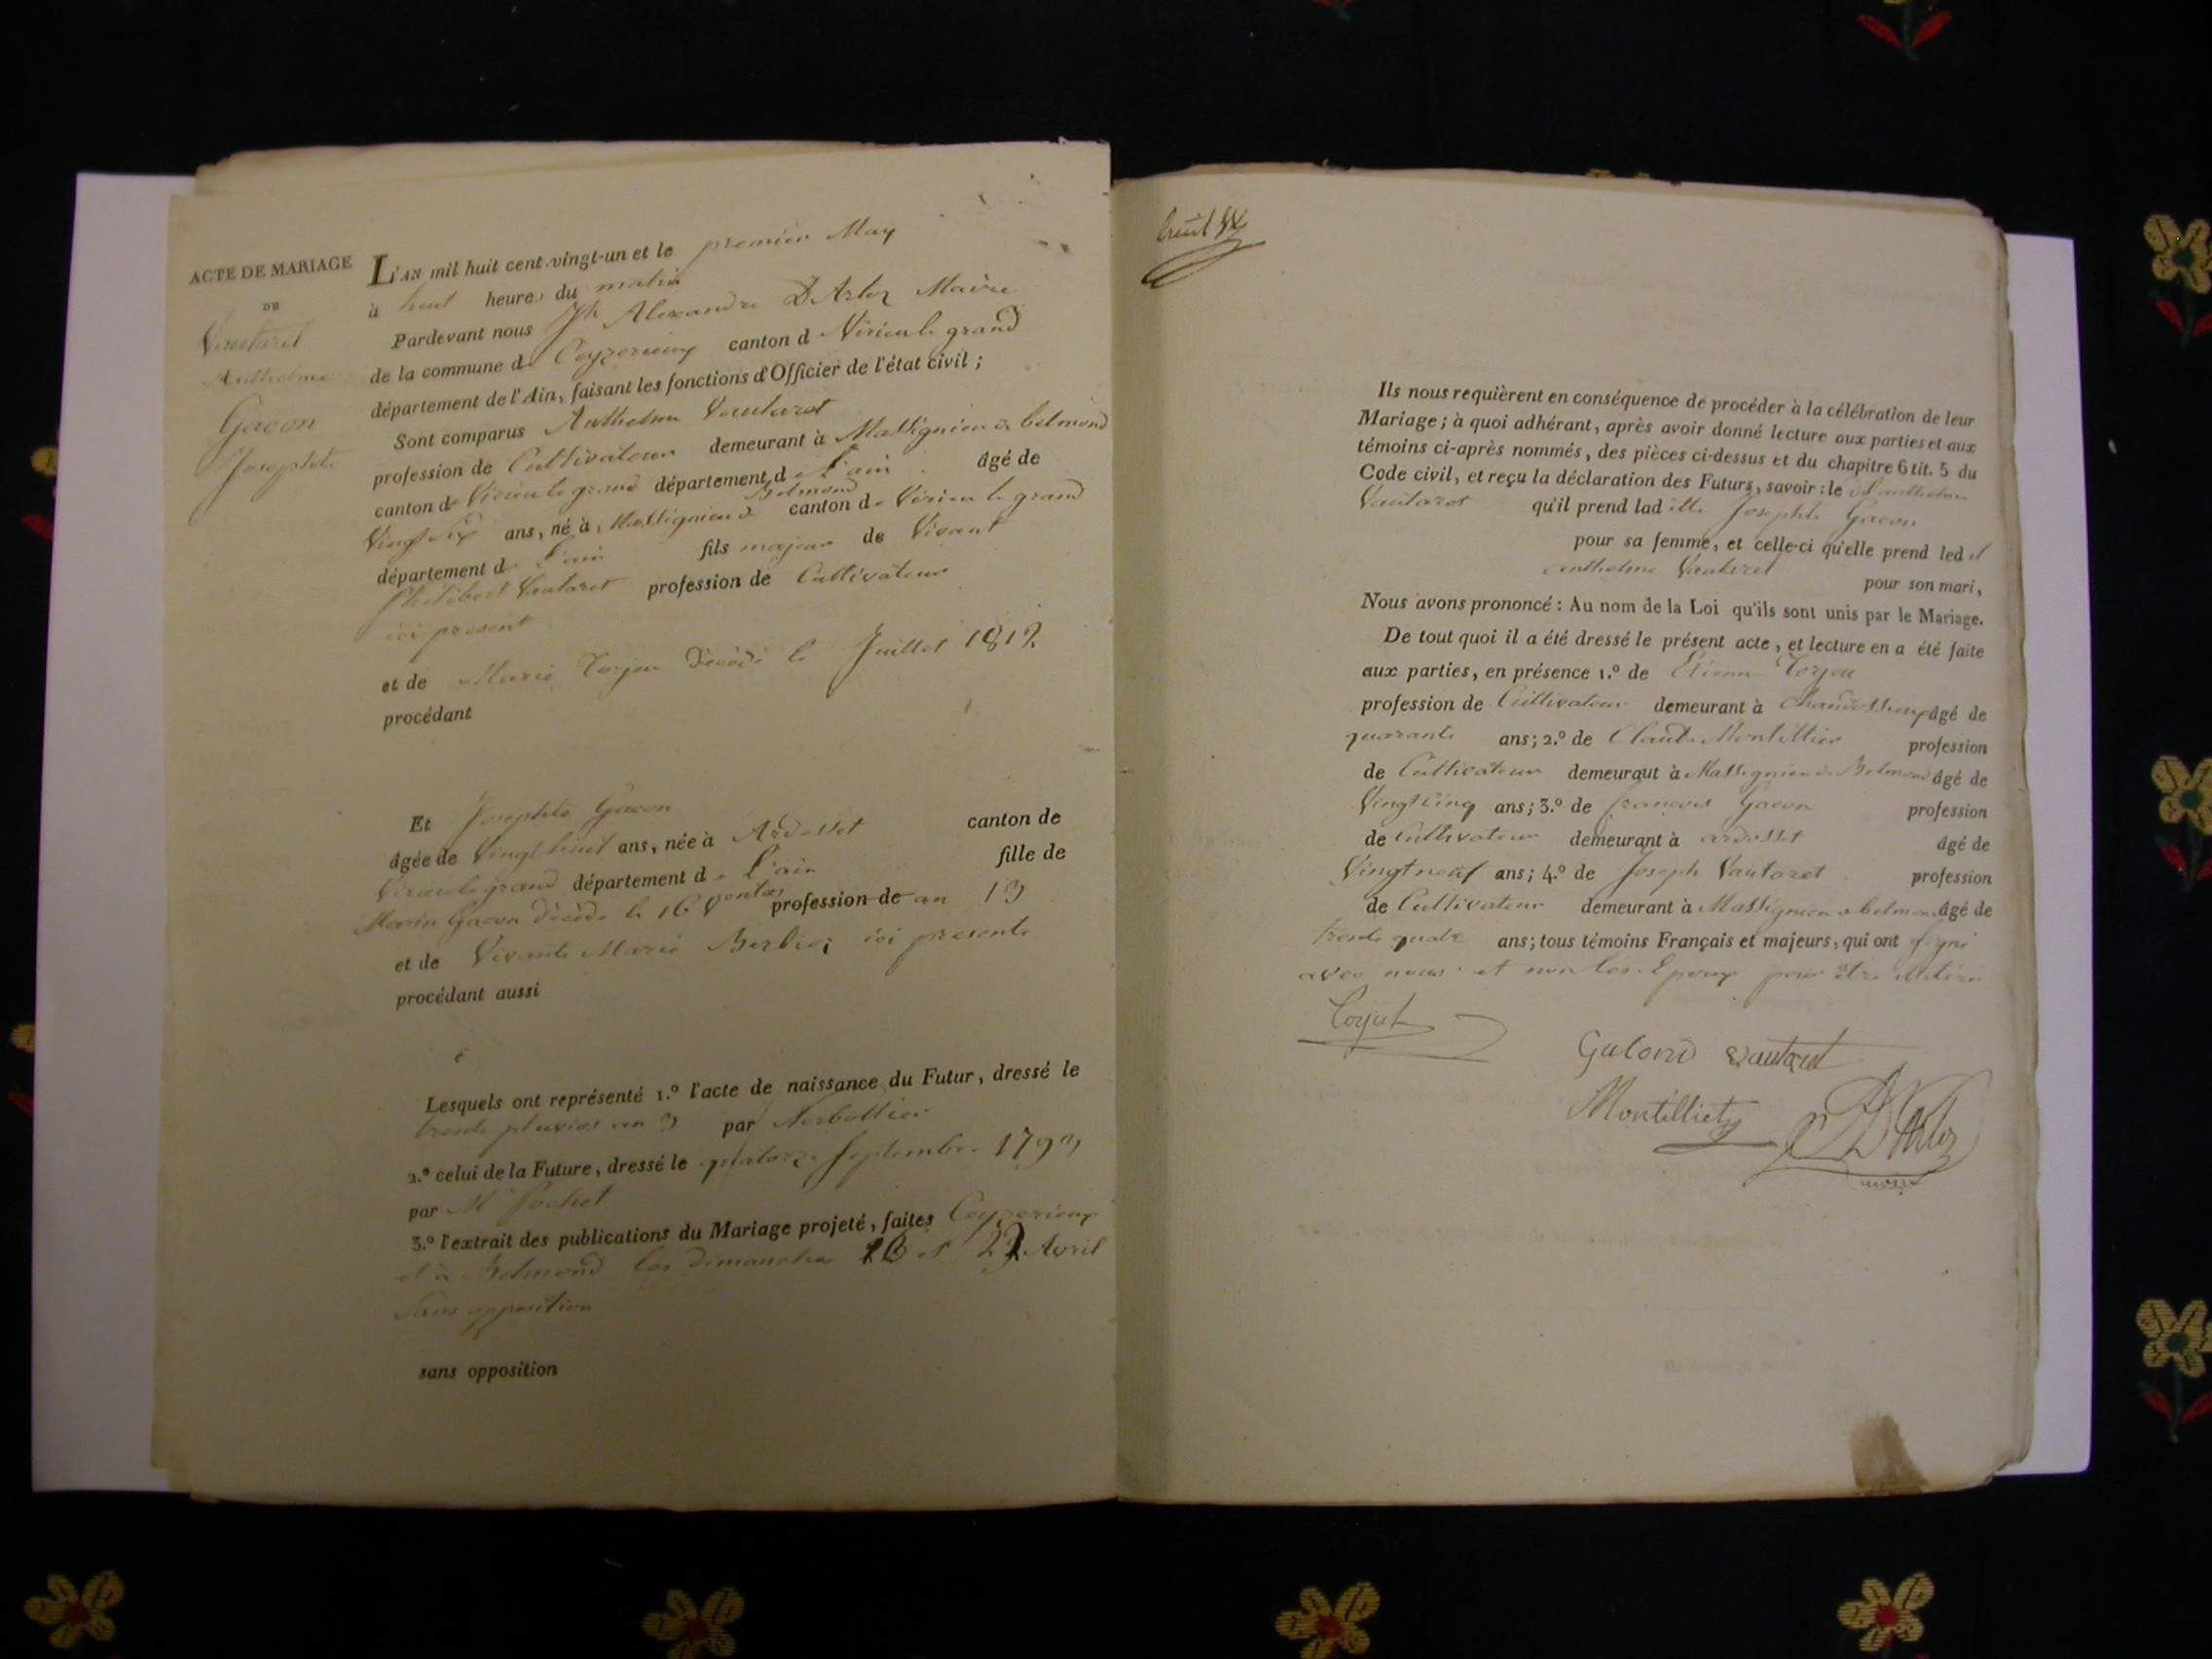 ACTE DE MARIAGE
DE
Vautaret
Anthelme
Gacon
Josephte
L'AN mil huit cent vingt-un et le premier May
à huit heures du matin
Pardevant nous Jh Alexandre D'Arloz Maire
de la commune de Ceyzerieux canton d Virieu le grand
département de l'Ain, faisant les fonctions d'Officier de l'état civil ;
Sont comparus Anthelme Vautaret
profession de Cultivateur demeurant à Massignieu & belmond
canton de Virieu le grand département de L'ain âgé de
Belmond
Vingt Six ans, né à Massignieu & canton de Virieu le grand
département de L'ain fils majeur de Vivant
Philibert Vautaret profession de Cultivateur
ici present
et de Marie décédé le Juillet 1812
procédant
Et Josephte Gacon
âgée de Vingt huit ans, née à Ardosset canton de
Virieu le grand département de L'ain fille de
Marin Gacon décédé le 16 Ventos profession de an 13
et de Vivante Marie Berlioz ici presente
procédant aussi
Lesquels ont représenté 1.º l'acte de naissance du Futur, dressé le
trente pluvios an 3 par
2.º celui de la Future, dressé le quatorze Septembre 179
par M Pochet
3.º l'extrait des publications du Mariage projeté, faites Ceyzerieux
et à Belmond les dimanches et Avril
Sans opposition
sans opposition
huit
Ils nous requièrent en conséquence de procéder à la célébration de leur
Mariage ; à quoi adhérant, après avoir donné lecture aux parties et aux
témoins ci-après nommés, des pièces ci-dessus et du chapitre 6 tit. 5 du
Code civil, et reçu la déclaration des Futurs, savoir : le dt anthelme
Vautaret qu'il prend lad itte Josephte Gacon
pour sa femme, et celle-ci qu'elle prend led it
anthelme Vautaret pour son mari,
Nous avons prononcé : Au nom de la Loi qu'ils sont unis par le Mariage.
De tout quoi il a été dressé le présent acte, et lecture en a été faite
aux parties, en présence 1.º de Etienne
profession de Cultivateur demeurant à Chandossin âgé de
quarante ans ; 2.º de Claude Montillier profession
de Cultivateur demeurant à Massignieu & Belmond âgé de
Vingt cinq ans ; 3.º de francois Gacon profession
de Cultivateur demeurant à ardosset âgé de
Vingt neuf ans ; 4.º de Joseph Vautaret profession
de Cultivateur demeurant à Massignieu & belmond âgé de
trente quatre ans ; tous témoins Français et majeurs, qui ont signé
avec nous et non les Epoux pour être illitéré
Gacond Vautaret
Montilliet D'Arloz
maire